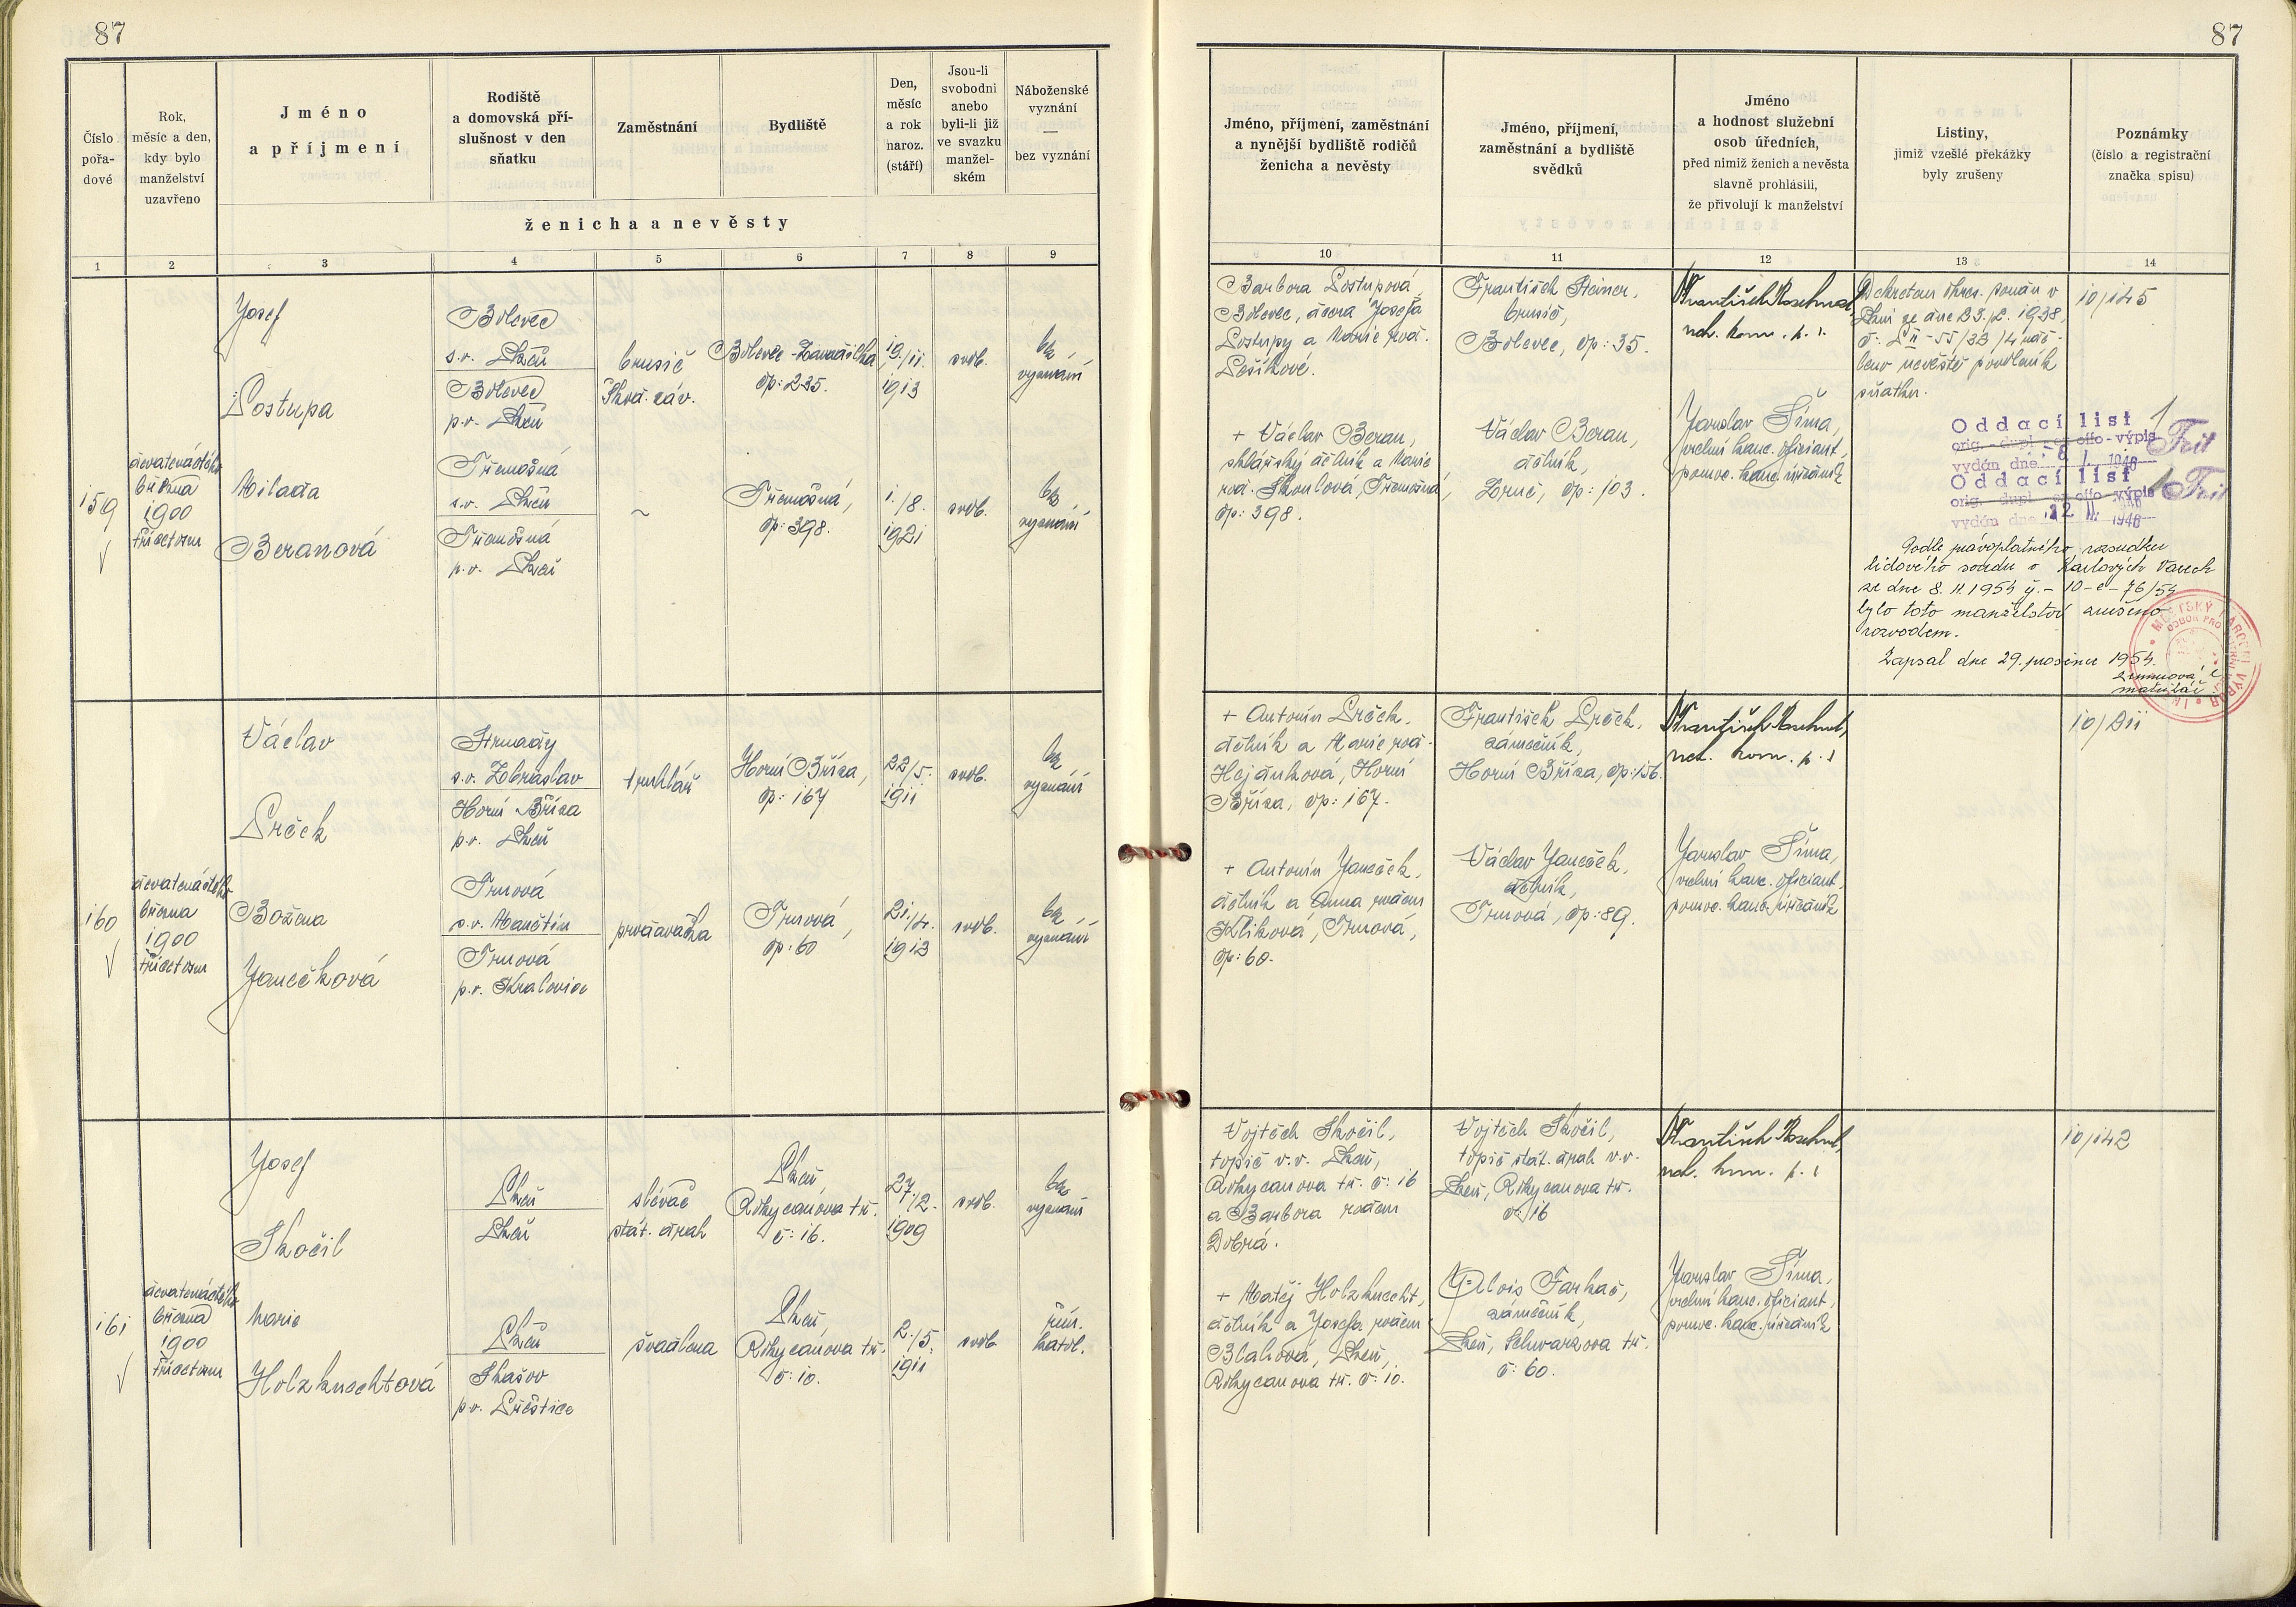 87
Číslo
pořa-
dové
Rok,
měsíc a den,
kdy bylo
manželství
uzavřeno
Jméno
a příjmení
Rodiště
a domovská pří-
slušnost v den
sňatku
Zaměstnání
Bydliště
Den,
měsíc
a rok
naroz.
(stáří)
Jsou-li
svobodni
anebo
byli-li již
ve svazku
manžel-
ském
Náboženské
vyznání
—
bez vyznání
ženicha a nevěsty
1 2 3 4 5 6 7 8 9
Josef
Postupa
Bolevec
s.o. Plzeň
Bolevec
p.o. Plzeň
brusič
Škod. záv.
Bolevec - Zavadilka,
čp: 235.
19./11.
1913
svob.
bez
vyznání
159
devatenáctého
března
1900
třicetosm
Milada
Beranová
Třemošná
s.o. Plzeň
Třemošná
p.o. Plzeň
~
Třemošná,
čp: 398.
1./8.
1921
svob.
bez
vyznání
Václav
Prček
Strnady
s.o. Zbraslav
Horní Bříza
p.o. Plzeň
truhlář
Horní Bříza,
čp: 167
22/5.
1911
svob.
bez
vyznání
160
devatenáctého
března
1900
třicetosm
Božena
Janečková
Trnová
s.o. Manětín
Trnová
p.o. Kralovice
prodavačka
Trnová,
čp: 60
21./4.
1913
svob.
bez
vyznání
Josef
Skočil
Plzeň
Plzeň
slévač
stát. drah
Plzeň,
Rokycanova tř.
č: 16.
27./2.
1909
svob.
bez
vyznání
161
devatenáctého
března
1900
třicetosm
Marie
Holzknechtová
Plzeň
Skašov
p.o. Přeštice
švadlena
Plzeň,
Rokycanova tř.
č: 10.
2./5.
1911
svob.
řím.
katol.
87
Jméno, příjmení, zaměstnání
a nynější bydliště rodičů
ženicha a nevěsty
Jméno, příjmení,
zaměstnání a bydliště
svědků
Jméno
a hodnost služební
osob úředních,
před nimiž ženich a nevěsta
slavně prohlásili,
že přivolují k manželství
Listiny,
jimiž vzešlé překážky
byly zrušeny
Poznámky
(číslo a registrační
značka spisu)
10 11 12 13 14
Barbora Postupová,
Bolevec, dcera Josefa
Postupy a Marie rod.
Pešíkové.
František Steiner,
brusič,
Bolevec, čp: 35.
nám. kom. p. s.
Dekretem okres. soudu v
Plzni ze dne 23./2. 1938,
leno nevěstě povolení k
sňatku.
10/145
+ Václav Beran,
sklářský dělník a Marie
rod. Skoulová, Třemošná,
čp: 398.
Václav Beran,
dělník,
Druč, čp: 103.
Jaroslav Šíma,
vrchní kanc. oficiant,
pomoc. kanc. úředník
Oddací list 1
orig. - dupl. - ex offo - výpis
vydán dne 1946
Oddací list 1
orig. dupl. ex offo výpis
vydán dne 1946
Podle právoplatného rozsudku
lidového soudu v Karlových Varech
ze dne 8. 11. 1954 č.j. - 10-C-76/54
bylo toto manželství zrušeno
rozvodem.
Zapsal dne 29. prosince 1954.
matrikář
+ Antonín Prček,
dělník a Marie rod.
Hejduková, Horní
Bříza, čp: 167.
František Prček,
zámečník,
Horní Bříza, čp: 156.
10/211
+ Antonín Janeček,
dělník a Anna rozem
Klíková, Trnová,
čp: 60.
Václav Janeček,
dělník,
Trnová, čp: 89.
Jaroslav Šíma,
vrchní kanc. oficiant,
pomoc. kanc. úředník
Vojtěch Skočil,
topič v.v. Plzeň,
Rokycanova tř. č: 16
a Barbora rozem
Dobrá.
Vojtěch Skočil,
topič stát. drah v.v.
Plzeň, Rokycanova tř.
č: 16
10/142
+ Matěj Holzknecht,
dělník a Josefa rozem
Blahová, Plzeň,
Rokycanova tř. č: 10.
Alois Farkač,
zámečník,
Plzeň, Schwarzova tř.
č: 60.
Jaroslav Šíma,
vrchní kanc. oficiant,
pomoc. kanc. úředník